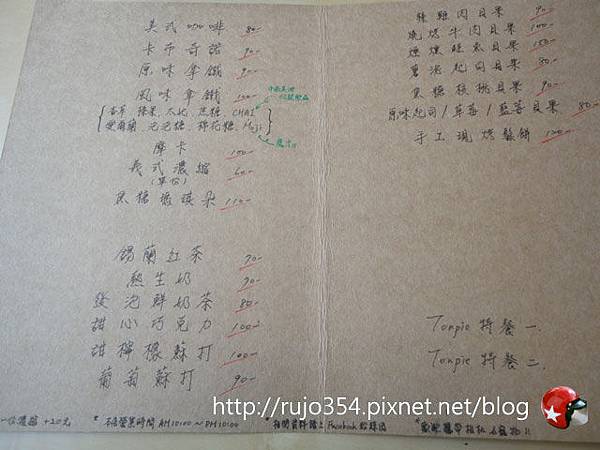 美式咖啡 80-
卡布奇諾 90-
原味拿鐵 90-
風味拿鐵 100-
香草、榛果、太妃、焦糖、CHAI
愛爾蘭、泡泡糖、棉花糖、Moji
摩卡 100-
義式濃縮 60-
(單份)
黑糖瑪琪朵 110-
錫蘭紅茶 70-
熱生奶 70-
發泡鮮奶茶 80-
甜心巧克力 100-
甜檸檬蘇打 100-
葡萄蘇打 90-
辣雞肉貝果 90-
燒烤牛肉貝果 100-
煙燻鮭魚貝果 150-
蔥泥起司貝果 80-
黑糖核桃貝果 90-
原味起司/草莓/藍莓貝果 80-
手工現烤鬆餅 120-
Tonpie 特餐一.
Tonpie 特餐二.
一份濃縮 +20元
*本店營業時間 AM10:00~PM10:00
相關資料請上 Facebook 粉絲團
http://rujo354.pixnet.net/blog